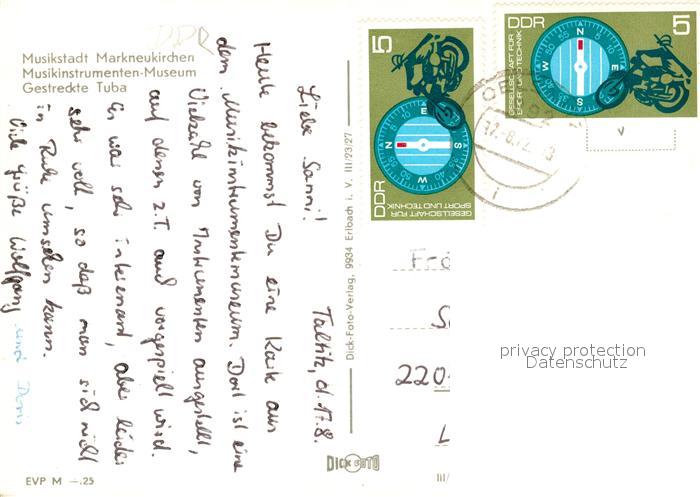 Musikstadt Markneukirchen
Musikinstrumenten-Museum
Gestreckte Tuba
DDR
Taltitz, d. 17.8.
Liebe Sanni!
Heute bekommst Du eine Karte aus
dem Musikinstrumentenmuseum. Dort ist eine
Vielzahl von Instrumenten ausgestellt,
auf denen z.T. auch vorgespielt wird.
Es war sehr interessant, aber leider
sehr voll, so daß man sich nicht
in Ruhe umsehen kann.
Viele Grüße Wolfgang und Doris
EVP M —.25
Dick-Foto-Verlag, 9934 Erlbach i. V. III/23/27
DICK FOTO
III/
DDR
5
GESELLSCHAFT FÜR
SPORT UND TECHNIK
N
E
S
W
DDR
5
GESELLSCHAFT FÜR
SPORT UND TECHNIK
N
E
S
W
220
privacy protection
Datenschutz